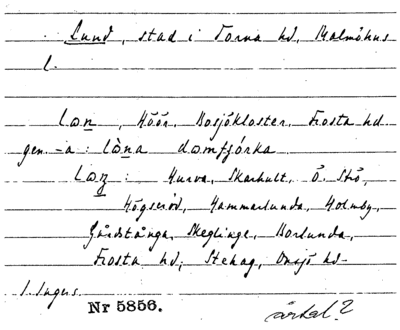 Lund, stad i Torna hd, Malmöhus
l.
lon, Höör, Bosjökloster, Frosta hd.
gen. -a: lòna domfjórka
loŋ: Hurva, Skarhult, Ö. Strö,
Högseröd, Hammarlunda, Holmby,
Gårdstånga, Skeglinge, Borlunda,
Frosta hd; Stehag, Onsjö hd-
I. Ingers.
Nr 5856.